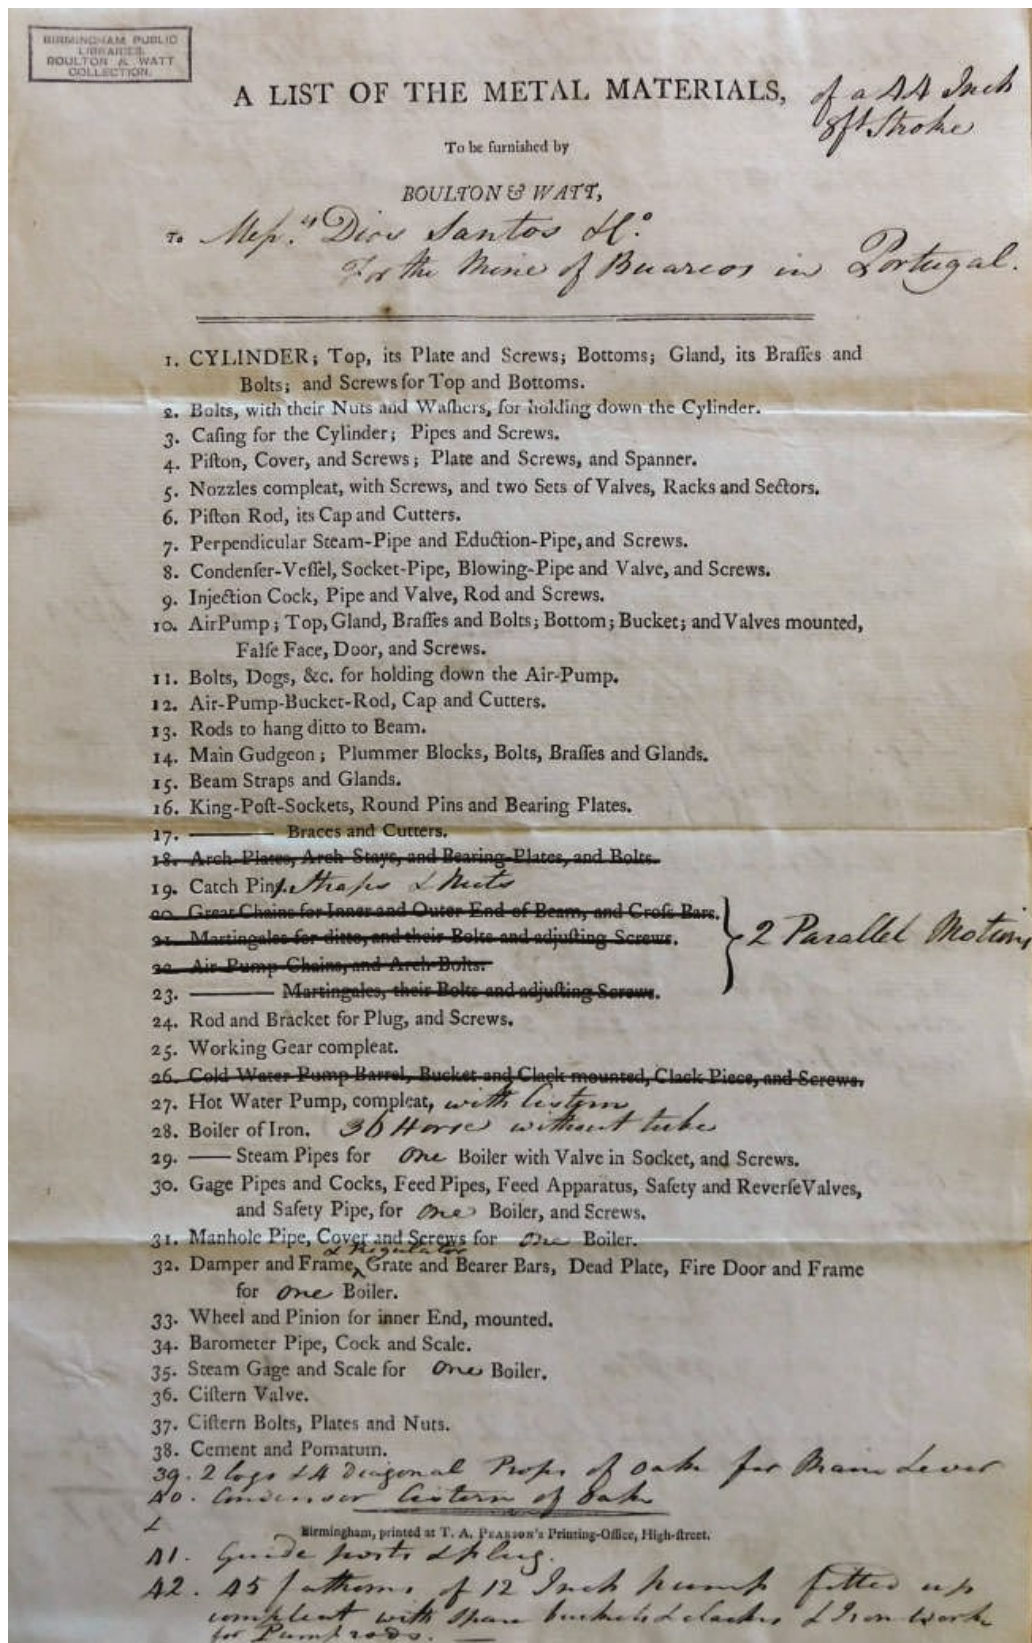 BIRMINGHAM PUBLIC
LIBRARIES.
BOULTON & WATT
COLLECTION.
A LIST OF THE METAL MATERIALS, of a 44 Inch
8ft Stroke
To be furnished by
BOULTON & WATT,
To Meſs.rs Dios Santos & Co.
For the Mine of Buarcos in Portugal.
1. CYLINDER; Top, its Plate and Screws; Bottoms; Gland, its Braſſes and
Bolts; and Screws for Top and Bottoms.
2. Bolts, with their Nuts and Waſhers, for holding down the Cylinder.
3. Caſing for the Cylinder; Pipes and Screws.
4. Piſton, Cover, and Screws; Plate and Screws, and Spanner.
5. Nozzles compleat, with Screws, and two Sets of Valves, Racks and Sectors.
6. Piſton Rod, its Cap and Cutters.
7. Perpendicular Steam-Pipe and Eduction-Pipe, and Screws.
8. Condenſer-Veſſel, Socket-Pipe, Blowing-Pipe and Valve, and Screws.
9. Injection Cock, Pipe and Valve, Rod and Screws.
10. Air Pump; Top, Gland, Braſſes and Bolts; Bottom; Bucket; and Valves mounted,
Falſe Face, Door, and Screws.
11. Bolts, Dogs, &c. for holding down the Air-Pump.
12. Air-Pump-Bucket-Rod, Cap and Cutters.
13. Rods to hang ditto to Beam.
14. Main Gudgeon; Plummer Blocks, Bolts, Braſſes and Glands.
15. Beam Straps and Glands.
16. King-Poſt-Sockets, Round Pins and Bearing Plates.
17. ——— Braces and Cutters.
18. Arch-Plates, Arch-Stays, and Bearing-Plates, and Bolts.
19. Catch Pins, Straps & Nuts
20. Great Chains for Inner and Outer End of Beam, and Croſs Bars.
21. Martingales for ditto, and their Bolts and adjuſting Screws.
2 Parallel Motions
22. Air Pump Chains, and Arch-Bolts.
23. ——— Martingales, their Bolts and adjuſting Screws.
24. Rod and Bracket for Plug, and Screws.
25. Working Gear compleat.
26. Cold Water Pump Barrel, Bucket and Clack mounted, Clack Piece, and Screws.
27. Hot Water Pump, compleat, with Cistern
28. Boiler of Iron. 36 Horse without tube
29. —— Steam Pipes for One Boiler with Valve in Socket, and Screws.
30. Gage Pipes and Cocks, Feed Pipes, Feed Apparatus, Safety and Reverſe Valves,
and Safety Pipe, for One Boiler, and Screws.
31. Manhole Pipe, Cover and Screws for One Boiler.
& Regulator
32. Damper and Frame, Grate and Bearer Bars, Dead Plate, Fire Door and Frame
for One Boiler.
33. Wheel and Pinion for inner End, mounted.
34. Barometer Pipe, Cock and Scale.
35. Steam Gage and Scale for One Boiler.
36. Ciſtern Valve.
37. Ciſtern Bolts, Plates and Nuts.
38. Cement and Pomatum.
39. 2 logs & 4 Diagonal Props of Oak for Main Lever
40. Condenser Cistern of Oak
Birmingham, printed at T. A. PEARSON's Printing-Office, High-ſtreet.
41. Guide posts & plug.
42. 45 fathoms of 12 Inch pumps fitted up
compleat with spare buckets & clacks & Iron work
for Pump rods.